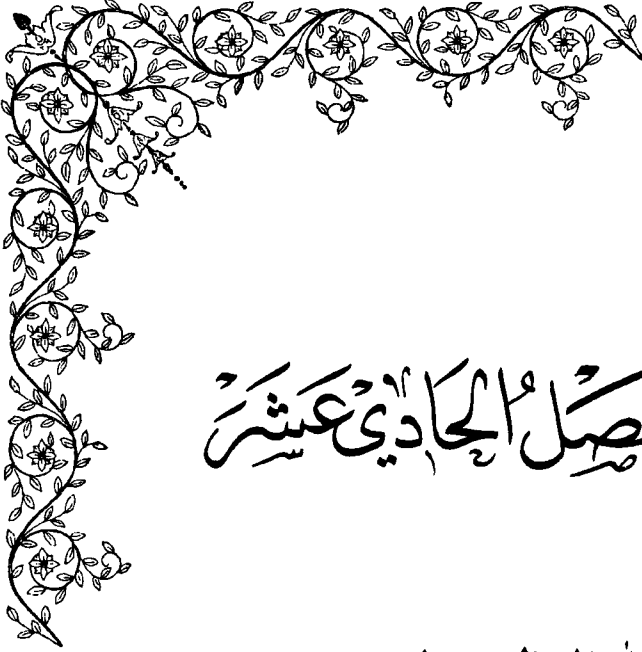 صْلُ الحَادِيْ عَشَرَ